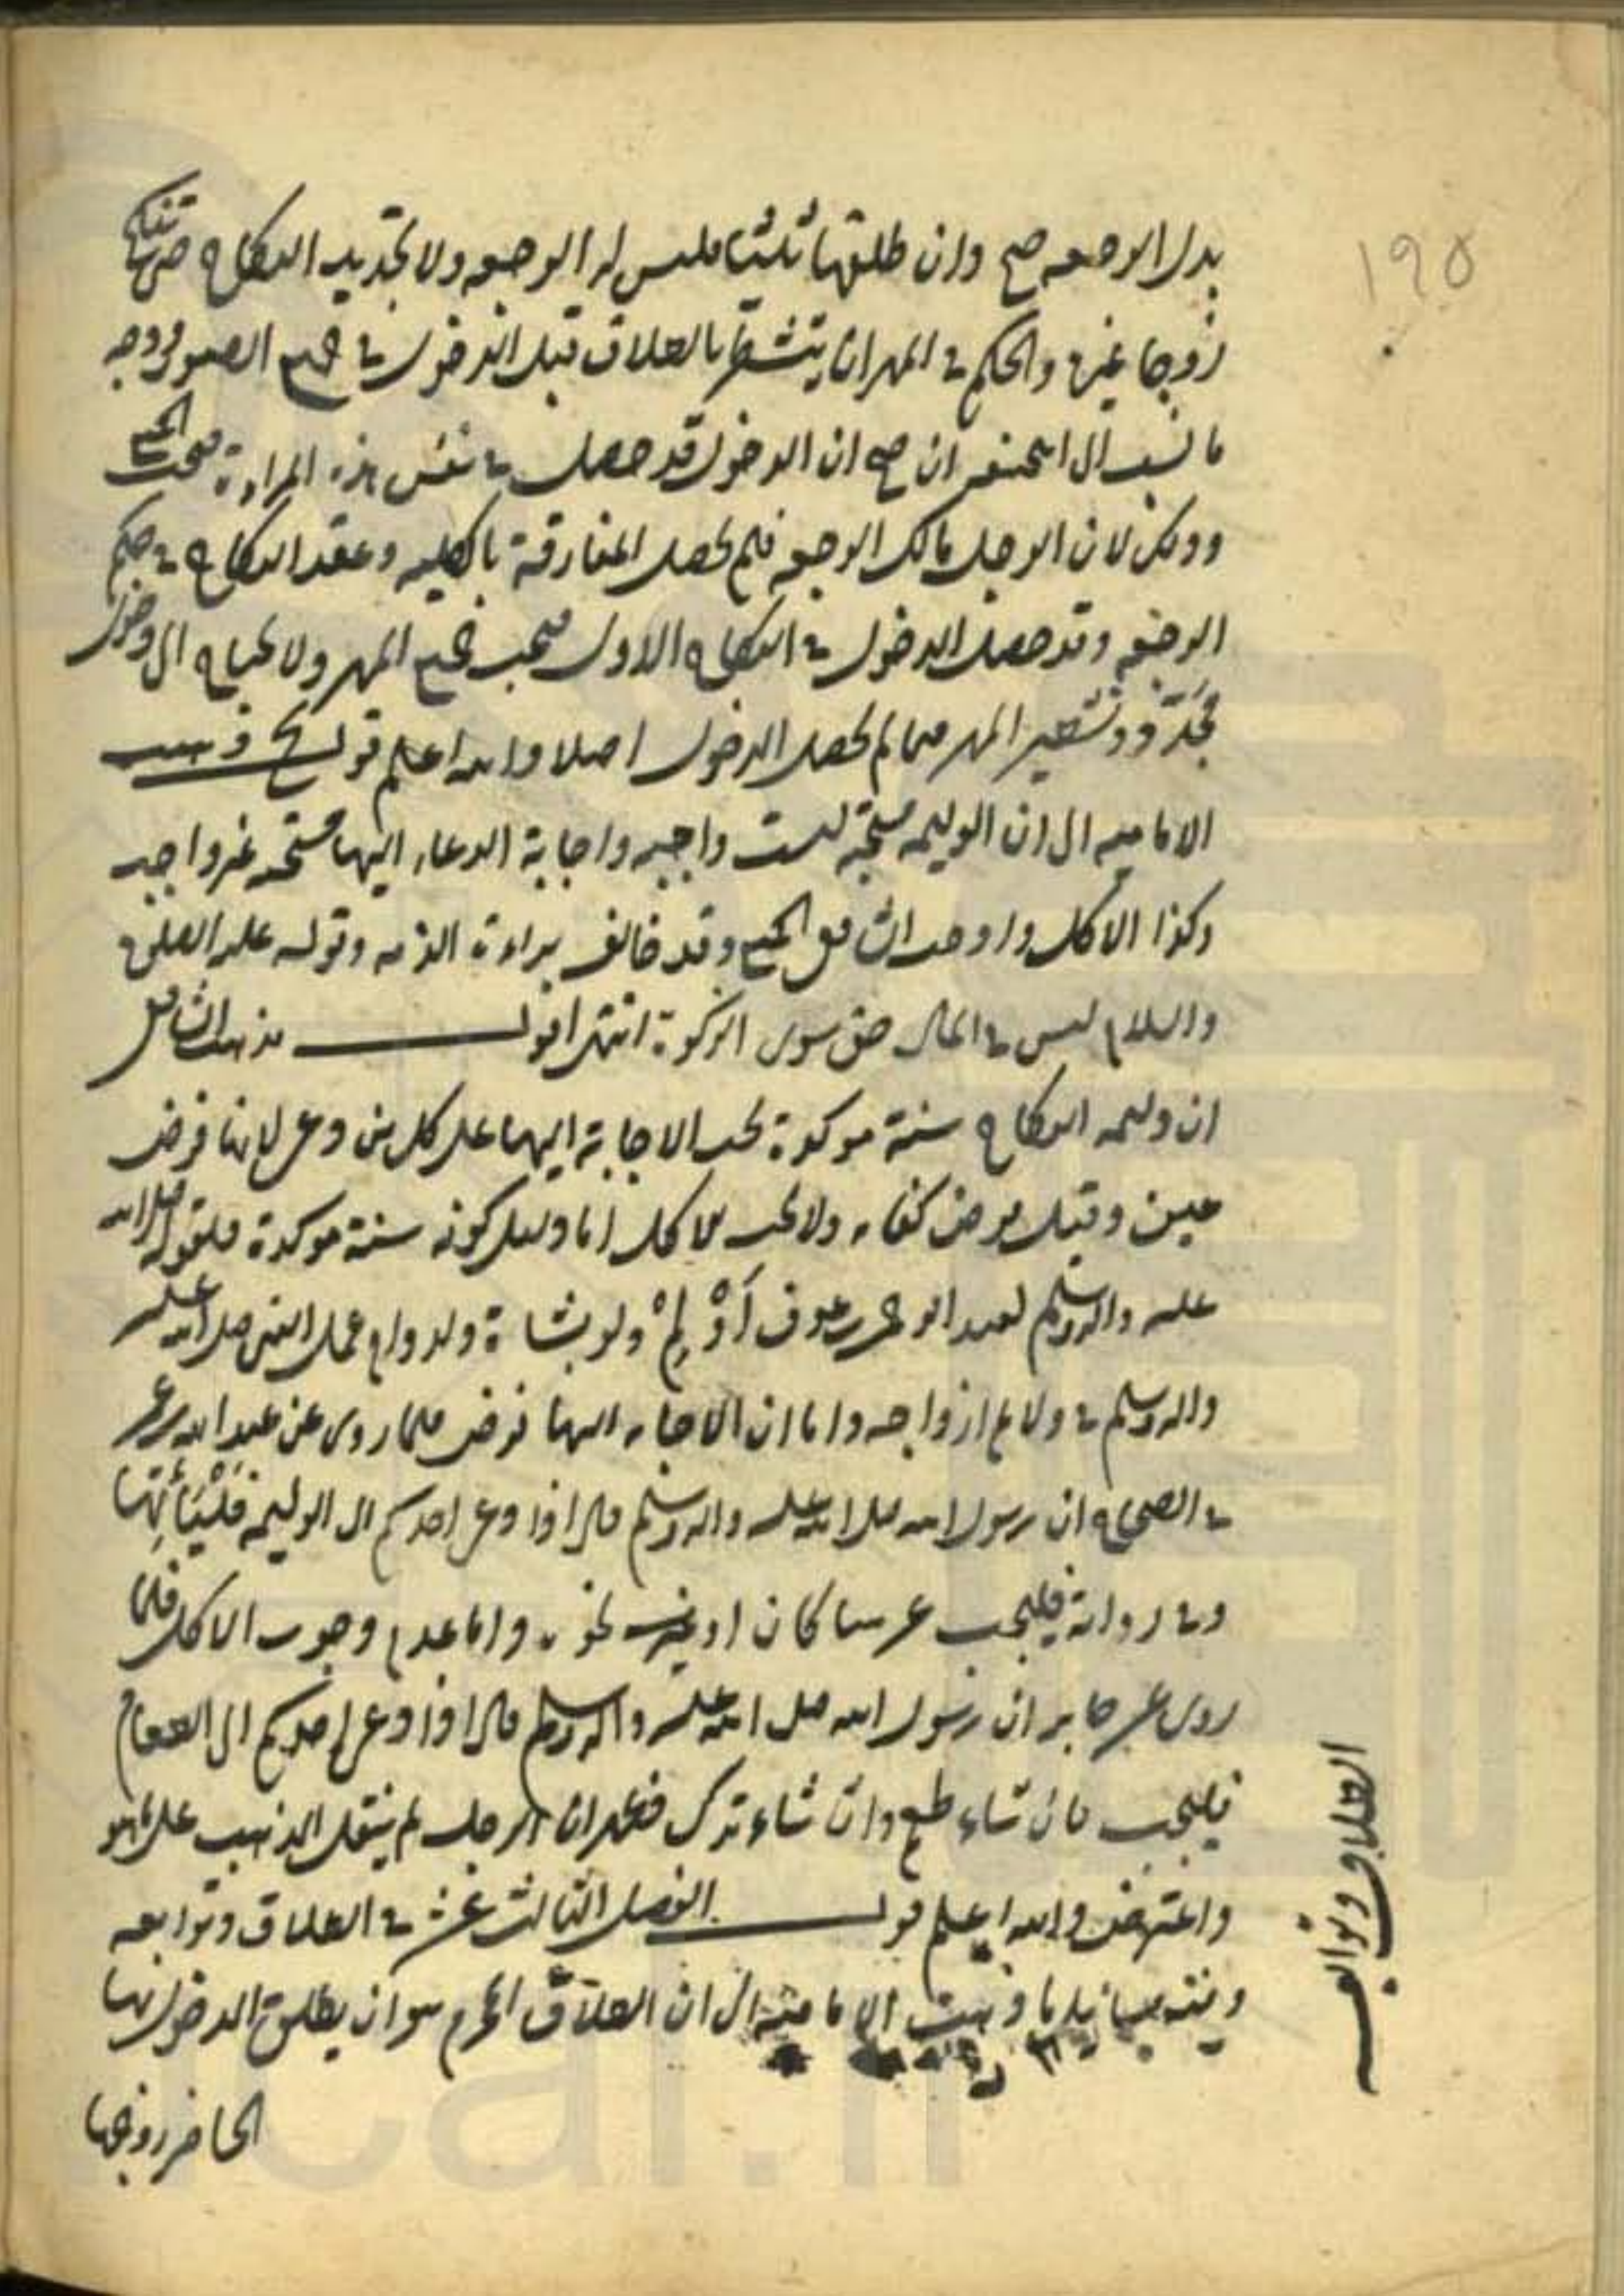 ١٩٥
بدل الرجعه صح وان طلقها ثلثا فليس له الرجعه ولا تجديد النكاح حتى تنكح
زوجا غيره والحكم في المهر ان يتشطر بالطلاق قبل الدخول في جميع الصور ووجه
ما نسب الى ابي حنيفه ان صح ان الدخول قد حصل في نفس هذه المراة فيجب الجميع
وذلك لان الرجل مالك الرجعه فلم يحصل المفارقة بالكليه وعقد النكاح في حكم
الرجعه وقد حصل الدخول في النكاح الاول فيجب جميع المهر ولا يحتاج الى دخول
مجدد وتشطير المهر فيما لم يحصل الدخول اصلا والله اعلم قوله يح ذهبت
الاماميه الى ان الوليمه مستحبه ليست واجبه واجابة الدعاء اليها مستحبه غير واجبه
وكذا الاكل واوجب الشافعي الجميع وقد خالف براءة الذمه وقوله عليه الصلوة
والسلام ليس في المال حق سوى الزكوة انتهى اقول مذهب الشافعي
ان وليمه النكاح سنة موكدة يجب الاجابة اليها على كل من دعي لانها فرض
عين وقيل فرض كفايه ولا يجب الاكل اما دليل كونه سنة موكدة فلقوله صلى الله
عليه واله وسلم لعبد الرحمن بن عوف أَوْلِمْ ولو بشاة ولدوام عمل النبي صلى الله عليه
واله وسلم في ولائم ازواجه واما ان الاجابه اليها فرض فلما روى عن عبد الله بن عمر
في الصحاح ان رسول الله صلى الله عليه واله وسلم قال اذا دعي احدكم الى الوليمه فَلْيَأْتِها
وفي رواية فليجب عرسا كان او نحوه واما عدم وجوب الاكل فلما
روى عن جابر ان رسول الله صلى الله عليه واله وسلم قال اذا دعي احدكم الى الطعام
فليجب فان شاء طعم وان شاء ترك فظهر ان الرجل لم ينقل المذهب على ما هو
واعترض والله اعلم قوله الفصل الثالث عشر في الطلاق وتوابعه
وفيه مسائل ا ذهبت الاماميه الى ان الطلاق المحرم هو ان يطلق المدخول بها
الحاضر زوجها
الطلاق وتوابعه